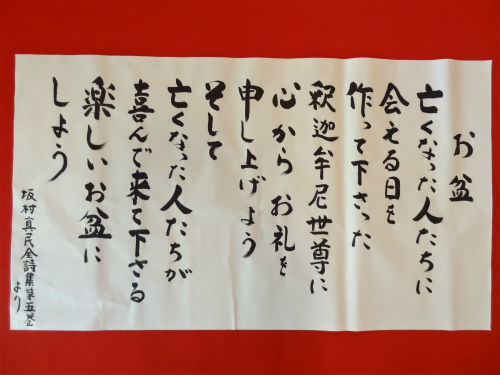 お盆
亡くなった人たちに
会える日を
作って下さった
釈迦牟尼世尊に
心からお礼を
申し上げよう
そして
亡くなった人たちが
喜んで来て下さる
楽しいお盆に
しよう
坂村真民全詩集第五巻
より